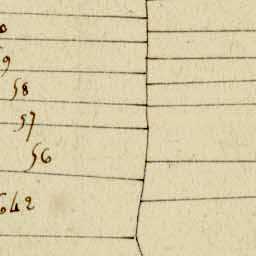 9
58
57
56
642